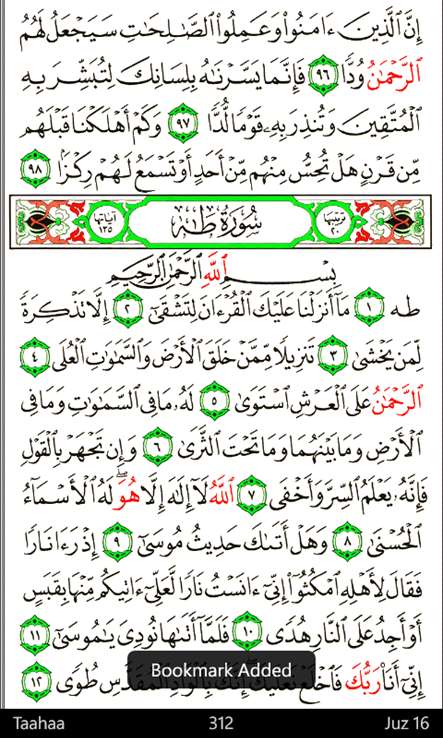 إِنَّ ٱلَّذِينَ ءَامَنُوا۟ وَعَمِلُوا۟ ٱلصَّـٰلِحَـٰتِ سَيَجْعَلُ لَهُمُ
ٱلرَّحْمَـٰنُ وُدًّا ٩٦ فَإِنَّمَا يَسَّرْنَـٰهُ بِلِسَانِكَ لِتُبَشِّرَ بِهِ
ٱلْمُتَّقِينَ وَتُنذِرَ بِهِۦ قَوْمًا لُّدًّا ٩٧ وَكَمْ أَهْلَكْنَا قَبْلَهُم
مِّن قَرْنٍ هَلْ تُحِسُّ مِنْهُم مِّنْ أَحَدٍ أَوْ تَسْمَعُ لَهُمْ رِكْزًۢا ٩٨
ترتيبها ٢٠ سُورَةُ طه آياتها ١٣٥
بِسْمِ ٱللَّهِ ٱلرَّحْمَـٰنِ ٱلرَّحِيمِ
طه ١ مَآ أَنزَلْنَا عَلَيْكَ ٱلْقُرْءَانَ لِتَشْقَىٰٓ ٢ إِلَّا تَذْكِرَةً
لِّمَن يَخْشَىٰ ٣ تَنزِيلًا مِّمَّنْ خَلَقَ ٱلْأَرْضَ وَٱلسَّمَـٰوَٰتِ ٱلْعُلَى ٤
ٱلرَّحْمَـٰنُ عَلَى ٱلْعَرْشِ ٱسْتَوَىٰ ٥ لَهُۥ مَا فِى ٱلسَّمَـٰوَٰتِ وَمَا فِى
ٱلْأَرْضِ وَمَا بَيْنَهُمَا وَمَا تَحْتَ ٱلثَّرَىٰ ٦ وَإِن تَجْهَرْ بِٱلْقَوْلِ
فَإِنَّهُۥ يَعْلَمُ ٱلسِّرَّ وَأَخْفَى ٧ ٱللَّهُ لَآ إِلَـٰهَ إِلَّا هُوَ ۖ لَهُ ٱلْأَسْمَآءُ
ٱلْحُسْنَىٰ ٨ وَهَلْ أَتَىٰكَ حَدِيثُ مُوسَىٰٓ ٩ إِذْ رَءَا نَارًا
فَقَالَ لِأَهْلِهِ ٱمْكُثُوٓا۟ إِنِّىٓ ءَانَسْتُ نَارًا لَّعَلِّىٓ ءَاتِيكُم مِّنْهَا بِقَبَسٍ
أَوْ أَجِدُ عَلَى ٱلنَّارِ هُدًى ١٠ فَلَمَّآ أَتَىٰهَا نُودِىَ يَـٰمُوسَىٰٓ ١١
إِنِّىٓ أَنَا۠ رَبُّكَ فَٱخْلَعْ نَعْلَيْكَ إِنَّكَ بِٱلْوَادِ ٱلْمُقَدَّسِ طُوًى ١٢
Bookmark Added
Taahaa 312 Juz 16